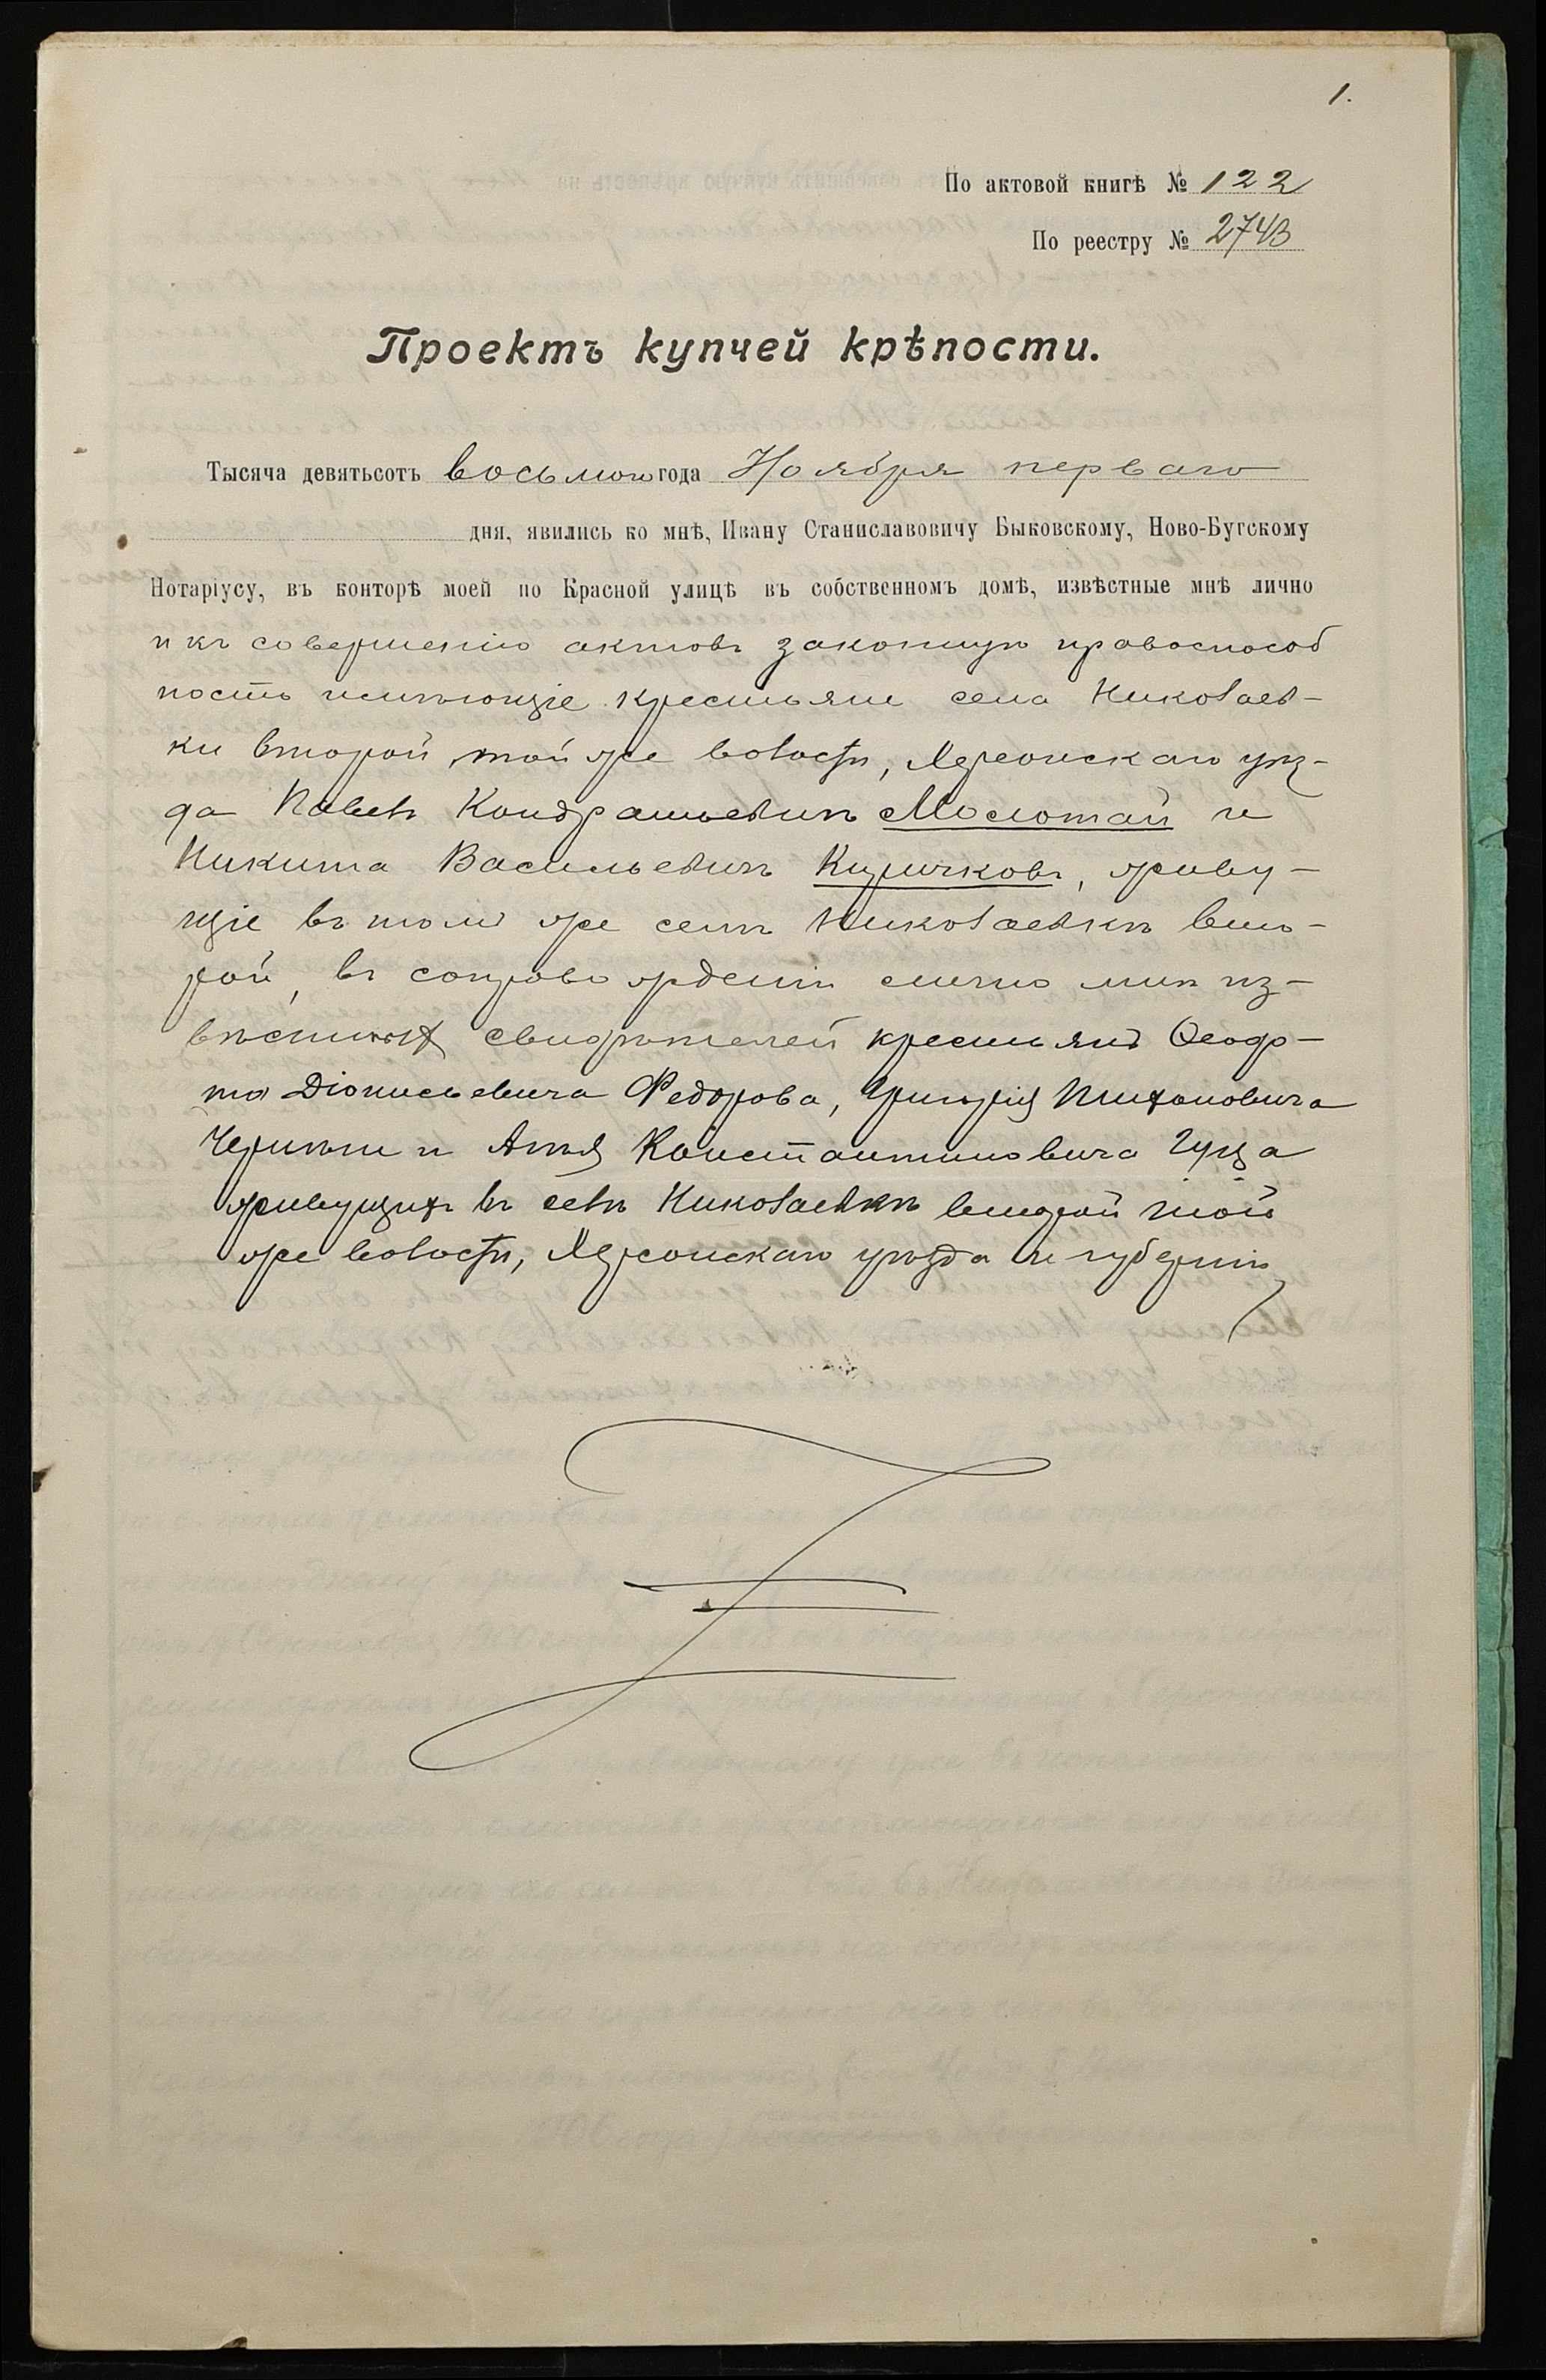 1.
По актовой книгѣ № 122
По реестру № 2743
Проектъ купчей крѣпости.
Тысяча девятьсотъ восьмого года Ноября перваго
дня, явились ко мнѣ, Ивану Станиславовичу Быковскому, Ново-Бугскому
Нотаріусу, въ конторѣ моей по Красной улицѣ въ собственномъ домѣ, извѣстные мнѣ лично
и къ совершенію актовъ законную правоспособ
ность имѣющіе крестьяне села Николаев-
ки второй, той же волости, Херсонскаго уѣз-
да Павелъ Кондратьевичъ Молотай и
Никита Васильевичъ Киричковъ, живу-
щіе въ томъ же селѣ Николаевкѣ вто-
рой, въ сопровожденіи лично мнѣ из-
вѣстныхъ свидѣтелей крестьянъ Ѳеодо-
та Діонисьевича Федорова, Григорія Тихоновича
и Константиновича Гуща
живущихъ въ селѣ Николаевкѣ второй той
же волости, Херсонскаго уѣзда и губерніи